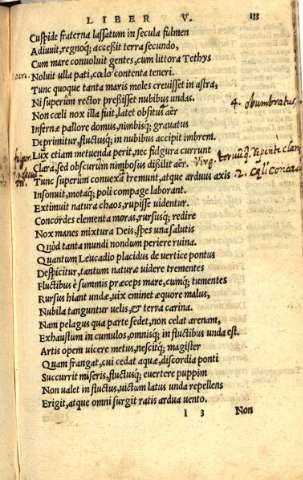 LIBER V. 133
Cuspide fraterna lassatum in secula fulmen
Adiuuit, regnoq; accessit terra secundo,
Cum mare conuoluit gentes, cum littora Tethys
Noluit ulla pati, cœlo contenta teneri.
Tunc quoque tanta maris moles creuisset in astra,
Ni superum rector pressisset nubibus undas.
Non cœli nox illa fuit, latet obsitus aër
Infernæ pallore domus, nimbisq; grauatus
Deprimitur, fluctusq; in nubibus accipit imbrem.
Lux etiam metuenda perit, nec fulgura currunt
Clara, sed obscurum nimbosus dissilit aër.
Tunc superum conuexa tremunt, atque arduus axis
Insonuit, motaq; poli compage laborant.
Extimuit natura chaos, rupisse uidentur.
Concordes elementa moras, rursusq; redire
Nox manes mixtura Deis, spes una salutis
Quòd tanta mundi nondum periere ruina.
Quantum Leucadio placidus de vertice pontus
Despicitur, tantum naturæ uidere trementes
Fluctibus è summis præceps mare, cumq; tumentes
Rursus hiant undæ, uix eminet æquore malus,
Nubila tanguntur uelis, & terra carina.
Nam pelagus qua parte sedet, non celat arenam,
Exhaustum in cumulos, omnisq; in fluctibus unda est.
Artis opem uicere metus, nescitq; magister
Quam frangat, cui cedat aquæ, discordia ponti
Succurrit miseris, fluctusq; euertere puppim
Non ualet in fluctus, uictum latus unda repellens
Erigit, atque omni surgit ratis ardua uento.
I 3 Non
4. obumbratus
Virg.
2.